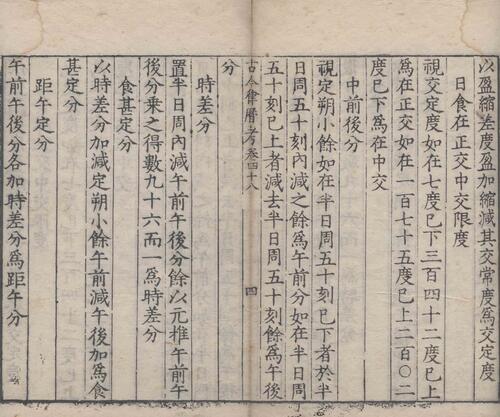 以盈縮差度盈加縮減其交常度爲交定度
日食在正交中交限度
視交定度如在七度已下三百四十二度已上
爲在正交如在一百七十五度已上二百〇二
度已下爲在中交
中前後分
視定朔小餘如在半日周五十刻已下者於半
日周五十刻內減之餘爲午前分如在半日周
五十刻已上者減去半日周五十刻餘爲午後
古今律曆考卷四十八
四
分
時差分
置半日周內減午前午後分餘以元椎午前午
後分乘之得數九十六而一爲時差分
食甚定分
以時差分加減定朔小餘午前減午後加爲食
甚定分
距午定分
午前午後分各加時差分爲距午分